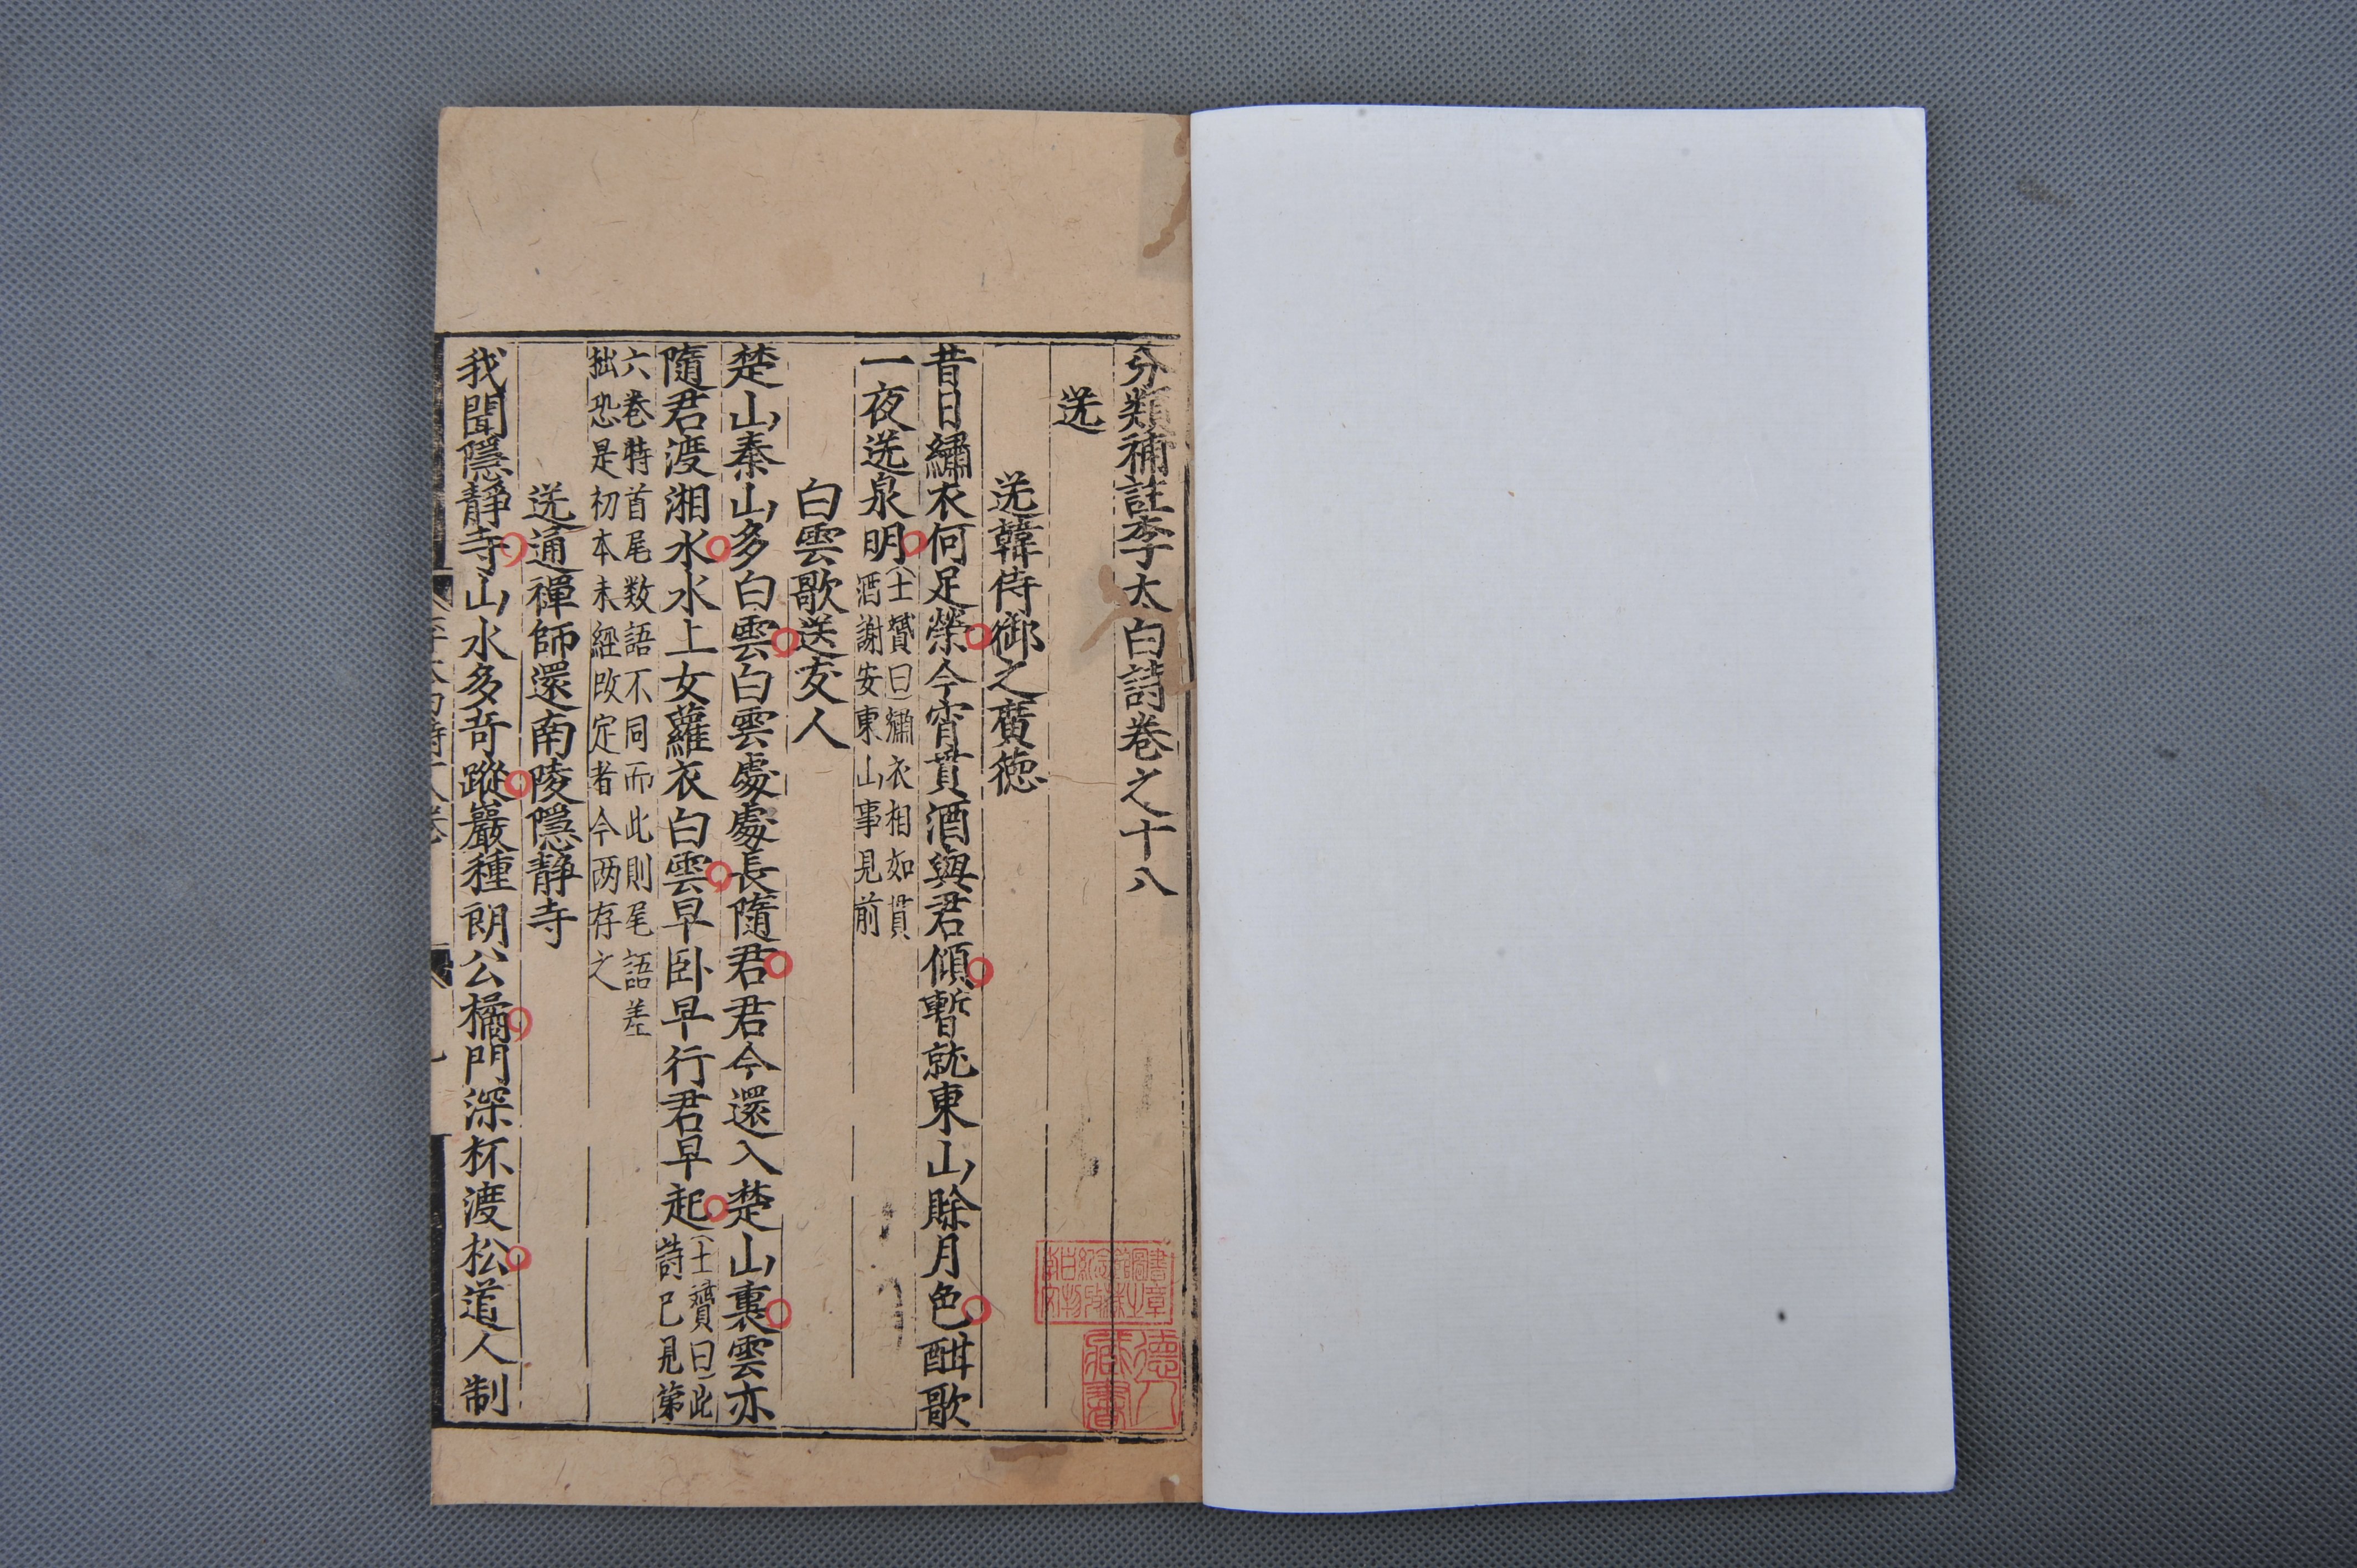 分類補註李太白詩卷之十八
送
送韓侍御之廣德
昔日繡衣何足榮今宵貰酒與君傾暫就東山賖月色酣歌
一夜送泉明
士贇曰繡衣相如貰
酒謝安東山事見前
白雲歌送友人
楚山秦山多白雲白雲處處長隨君君今還入楚山裏雲亦
隨君渡湘水水上女蘿衣白雲早卧早行君早起
士贇曰此
詩已見第
六卷特首尾数語不同而此則尾語差
拙恐是初本未經改定者今两存之
送通禪師還南陵隱静寺
我聞隱靜寺山水多奇蹤巖種朗公橘門深杯渡松道人制